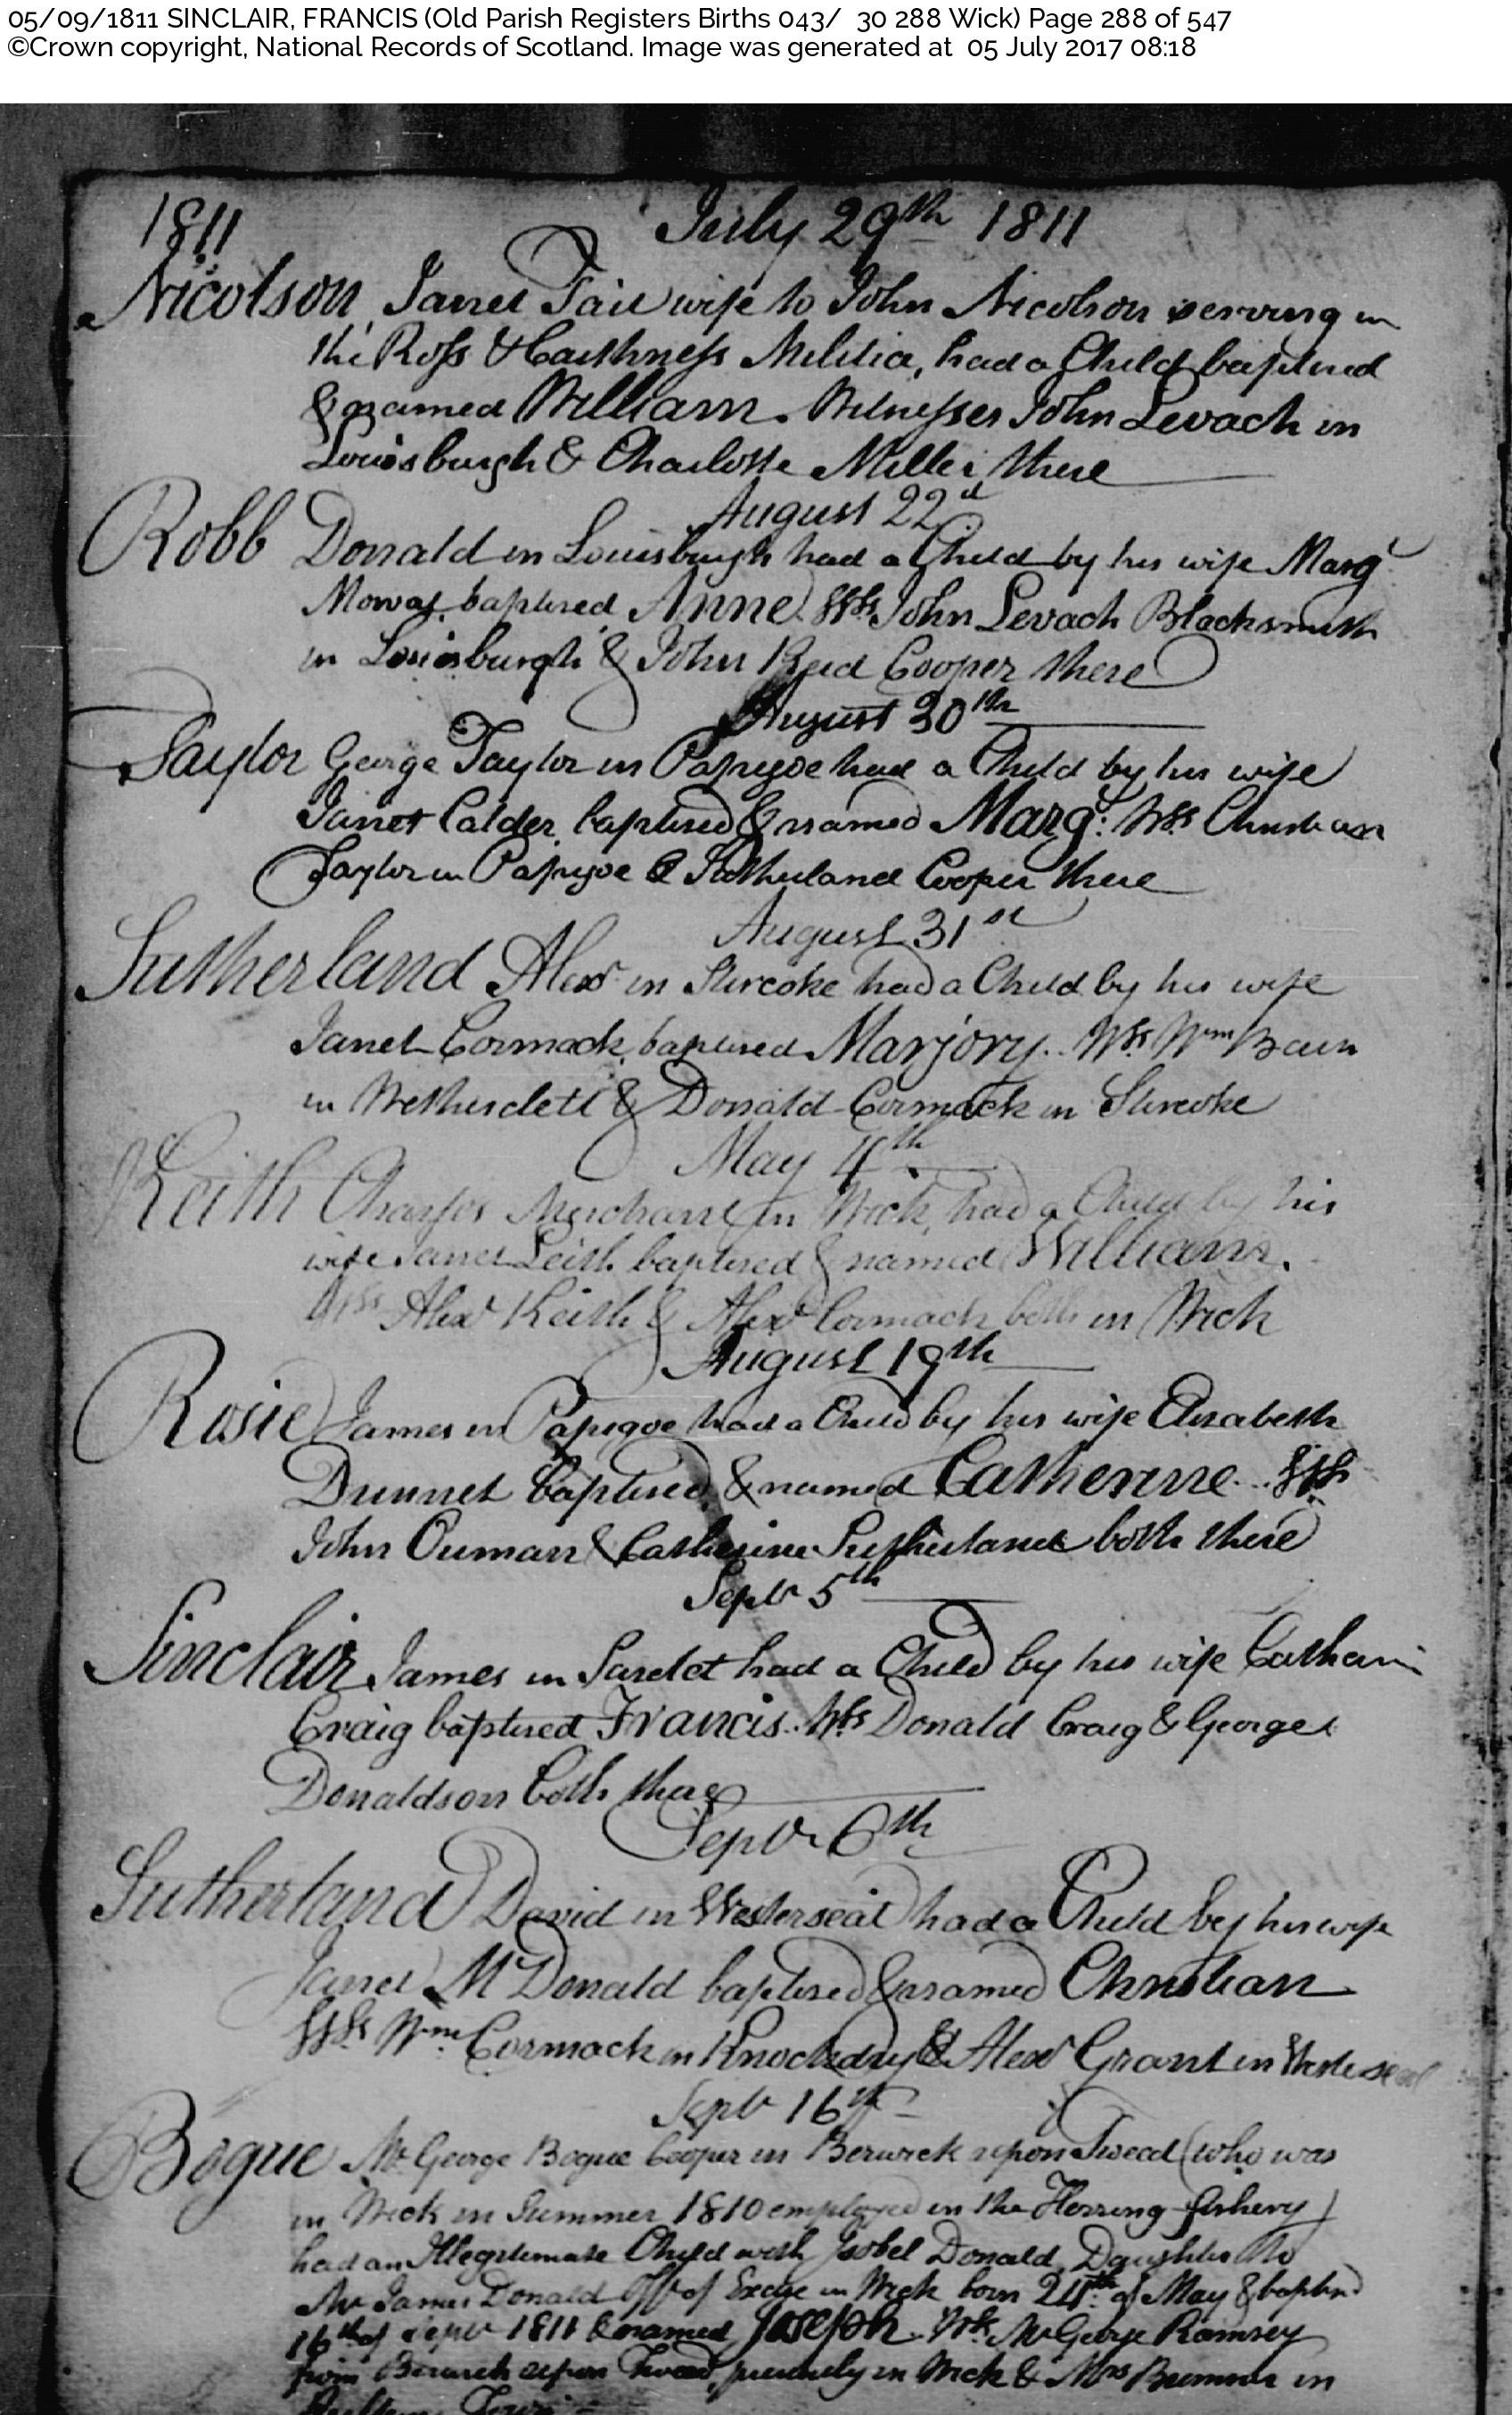 05/09/1811 SINCLAIR, FRANCIS (Old Parish Registers Births 043/ 30 288 Wick) Page 288 of 547
©Crown copyright, National Records of Scotland. Image was generated at 05 July 2017 08:18
1811 July 29th 1811
Nicolson Janet Tait wife to John Nicolson serving in
the Ross & Caithness Militia, had a Child baptised
& named William. Witnesses John Levach in
Louisburgh & Charlotte Miller there
August 22d
Robb Donald in Louisburgh had a Child by his wife Margt
Mowat baptised Anne. Wss John Levach Blacksmith
in Louisburgh & John Reid Cooper there
August 30th
Taylor George Taylor in Papigoe had a Child by his wife
Janet Calder baptised & named Margt: Wss Christian
Taylor in Papigoe & Sutherland Cooper there
August 31st
Sutherland Alexr in Stircoke had a Child by his wife
Janet Cormack baptised Marjory. Wss Wm Bain
in Wetherclett & Donald Cormack in Stircoke
May 4th
Keith Charles Merchant in Wick, had a Child by his
wife Janet Leith baptised & named William.
Wss Alexr Keith & Alexr Cormack both in Wick
August 19th
Rosie James in Papigoe had a Child by his wife Elisabeth
Dunnet baptised & named Catherine. Wss
John Ouman & Catherine Sutherland both there
Septr 5th
Sinclair James in Sarclet had a Child by his wife Catharin
Craig baptised Francis. Wss Donald Craig & George
Donaldson both there
Septr 6th
Sutherland David in Westerseat had a Child by his wife
Janet McDonald baptised & named Christian
Wss Wm Cormack in Knockdry & Alexr Grant in Westerseat
Septr 16th
Bogue Mr George Bogue Cooper in Berwick upon Tweed (who was
in Wick in Summer 1810 employed in the Herring fishery)
had an Illegitimate Child with Isobel Donald Daughter to
Mr James Donald Offr of Excise in Wick born 24th of May & baptised
16th of Septr 1811 & named Joseph. Wss Mr George Ramsey
from Berwick upon Tweed presently in Wick & Mrs Bremner in